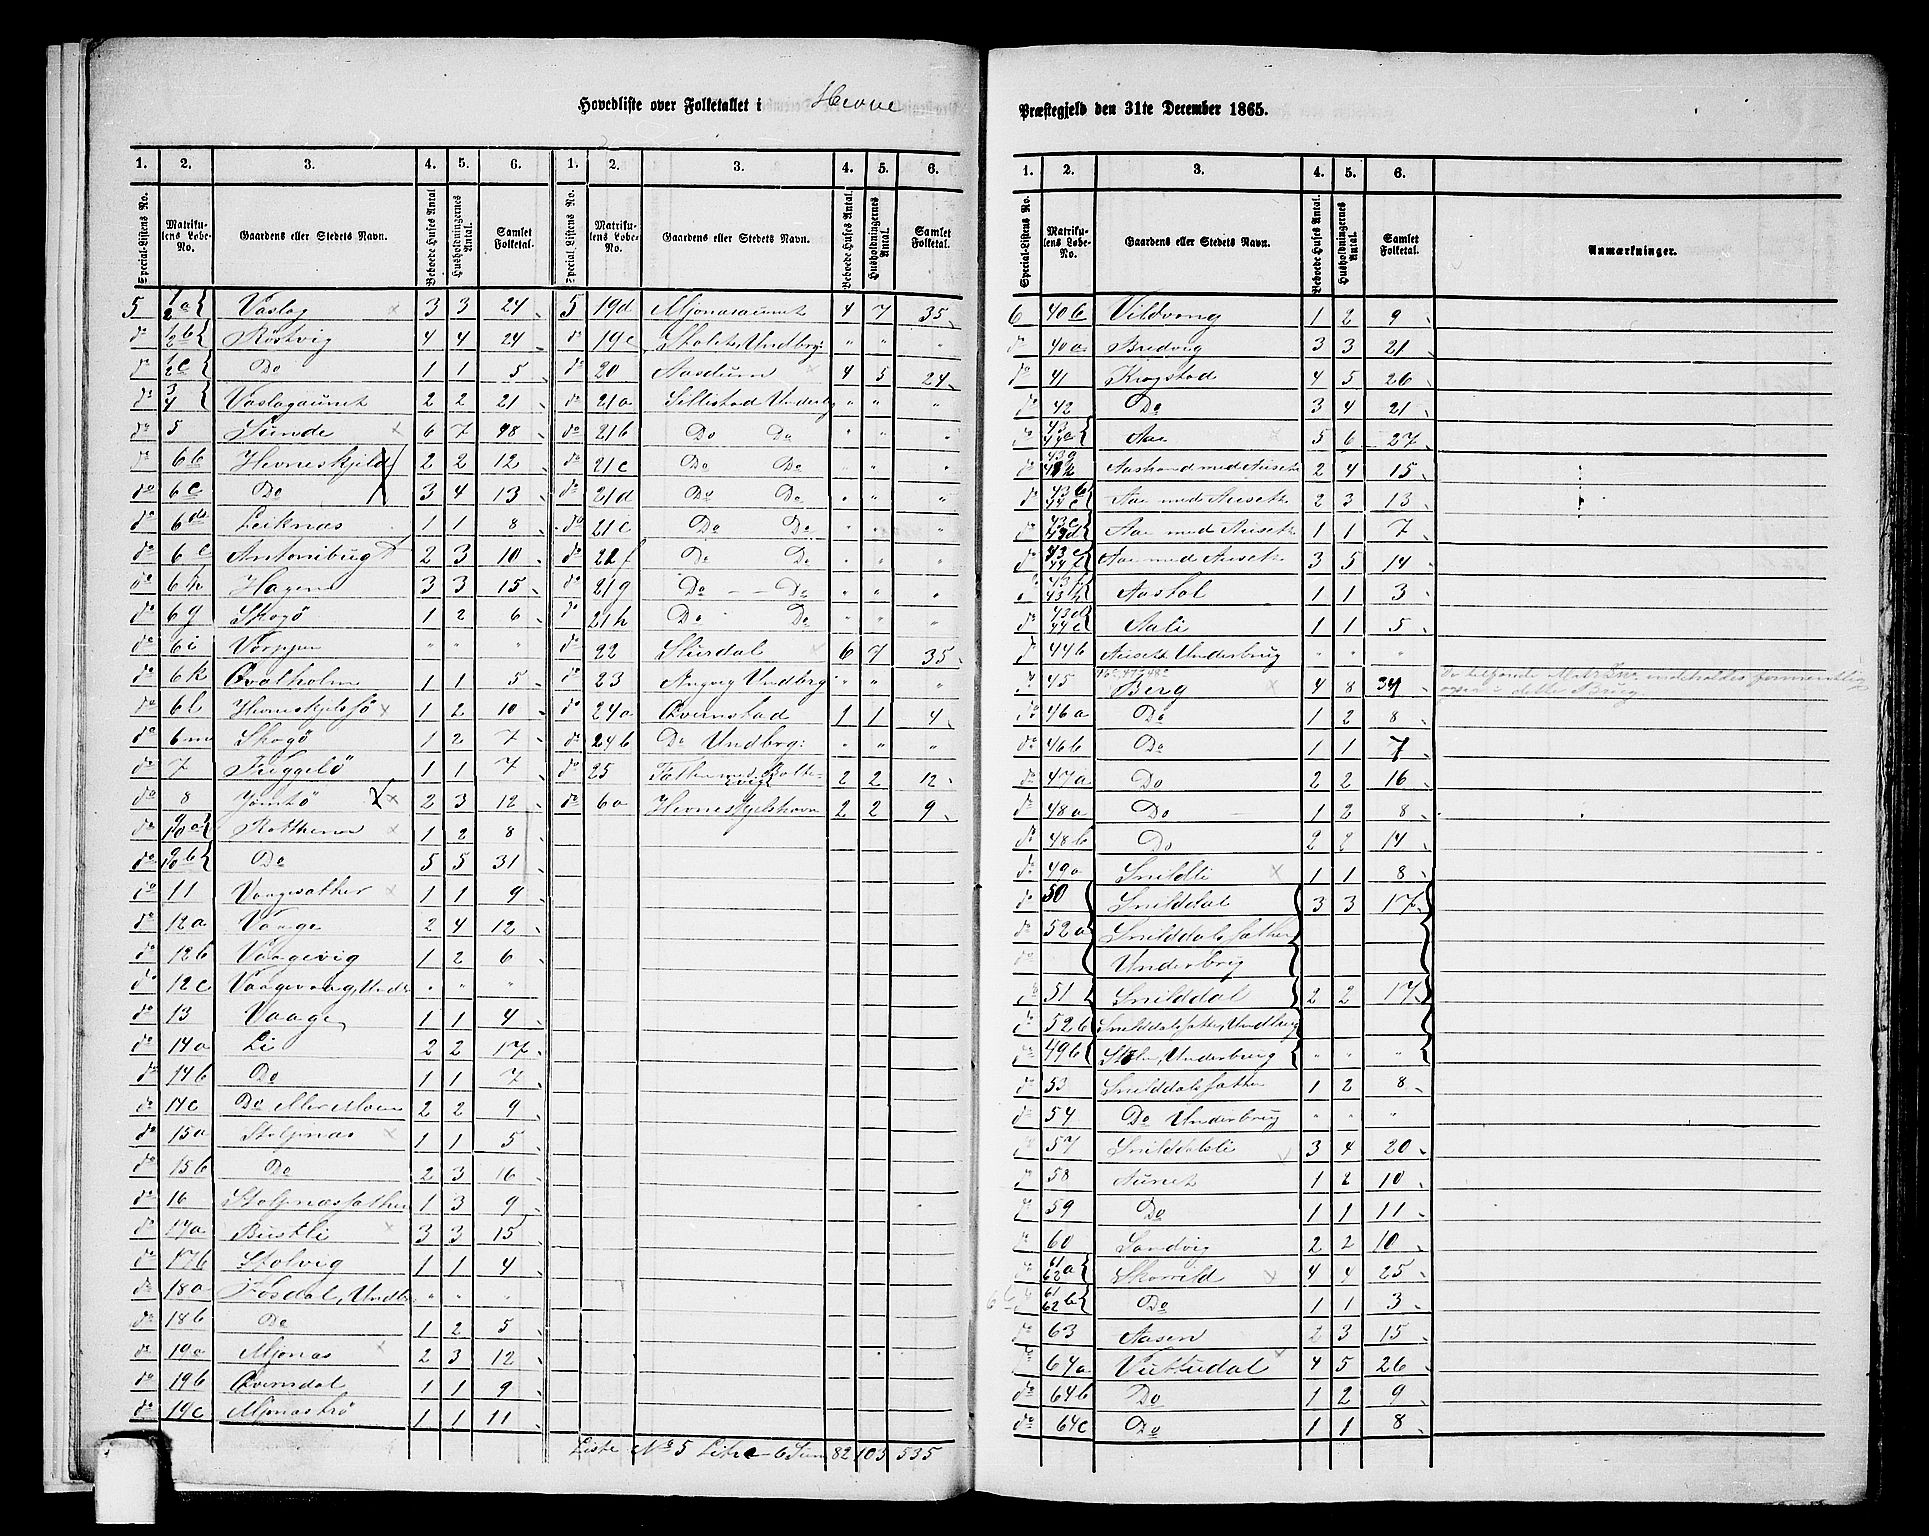 Hovedliste over Folketallet i Hevne Præstegjeld den 31te December 1865.
1. 2. 3. 4. 5. 6. 1. 2. 3. 4. 5. 6.
Special-Listens No. Matrikulens Løbe-No. Gaardens eller Stedets Navn. Beboede Huses Antal Husholdningernes Antal. Samlet Folketal. Special-Listens No. Matrikulens Løbe-No. Gaardens eller Stedets Navn. Beboede Huses Antal. Husholdningernes Antal. Samlet Folketal.
5 1/2a Vaslag 3 3 24
do 1/2b Röstvig 4 4 24
do 1/2c Do 1 1 5
do 3/4 Vaslagaunet 2 2 21
do 5 Sunde 6 7 48
do 6b Hevneskjeld 2 2 12
do 6c Do 3 4 13
do 6d Leiknæs 1 1 8
do 6e Antonibugt 2 3 10
do 6h Hagen 3 3 15
do 6g Skogö 1 2 6
do 6i Vorppen " " "
do 6k Qvalholm 1 1 5
do 6l Hevneskjelsö 1 2 10
do 6m Skogö 1 2 7
do 7 Truggelö 1 1 7
do 8 Jamtö 2 3 12
do 9/10a Rotthena 1 2 8
do 9/10b Do 5 5 31
do 11 Vaagesæther 1 1 9
do 12a Vaage 2 4 12
do 12b Vaagevig 1 2 6
do 12c Vaagevaag, Under " " "
do 13 Vaage 1 1 4
do 14a Li 2 2 17
do 14b Do 1 1 7
do 14c Do eller Moen 2 2 9
do 15a Stolpnæs 1 1 5
do 15b Do 2 3 16
do 16 Stolpnæssæther 1 3 9
do 17a Bustli 3 3 15
do 17b Stolvig 1 1 4
do 18a Fosdal, Undbr " " "
do 18b Do 1 2 5
do 19a Mjønæs 2 3 12
do 19b Qverndal 1 1 9
do 19c Mjönæströ 1 1 11
5 19d Mjonæsaunet 4 7 35
do 19e Stolet, Undbrg: " " "
do 20 Aasdum 4 5 24
do 21a Sellistad Underbg " " "
do 21b Do Do " " "
do 21c Do Do " " "
do 21d Do Do " " "
do 21e Do Do " " "
do 21f Do Do " " "
do 21g Do Do " " "
do 21h Do Do " " "
do 22 Slurdal 6 7 35
do 23 Angvig Undbrg " " "
do 24a Qvernstad 1 1 4
do 24b Do Undbrg: " " "
do 25 2 2 12
do 6a Hevneskjelshavn 2 2 9
Liste No 5 Litra 6 Sum 82 103 535
1. 2. 3. 4. 5. 6.
Special-Listens No. Matrikulens Løbe-No. Gaardens eller Stedets Navn. Beboede Huses Antal. Husholdningernes Antal. Samlet Folketal. Anmærkninger.
6 40b Vildvong 1 2 9
do 40a Bredvig 3 3 21
do 41 Krogstad 4 5 26
do 42 Do 3 4 21
do 43/44a Aae 5 6 27
do 43g/44h Aastrand med Auset 2 4 15
do 43b/44c Aae med Auset 2 3 13
do 43c/44d Aae med Auset 1 1 7
do 43e/44f Aae med Auset 3 5 14
do 43f/43h Aastøl 1 1 3
do 43d/44e Aali 1 1 5
do 44b Auset Underbrug " " "
do 45 Berg 4 8 34
do 46a Do 1 2 8
do 46b Do 1 1 7
do 47a Do 2 2 16
do 48a Do 1 2 8
do 48b Do 2 2 14
do 49a Snildli 1 1 8
do 50 Snilddal 3 3 17
do 52a Snilddalssæther
do Underbrug
do 51 Snilddal 2 2 17
do 52b Snilddalssæther, Undbrug
do 49b Stølen, Underbrug " " "
do 53 Snilddalssæther 1 2 8
do 54 Do Underbrug " " "
do 57 Snilddalsli 3 4 20
do 58 Aunet 1 2 10
do 59 Do 1 1 11
do 60 Sandvig 2 2 10
do 61/62a Skorild 4 4 25
do 61/62b Do 1 1 3
do 63 Aasen 2 3 15
do 64a Vuttudal 4 5 26
do 64b Do 1 2 9
do 64c Do 1 1 8